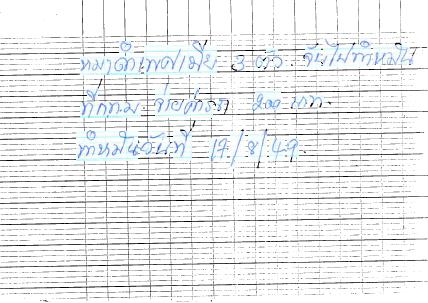 หมาดำเพศเมีย 3 ตัว จับไปทำหมัน
ที่กทม. จ่ายค่ารถ 200 บาท.
ทำหมันวันที่ 17/8/49.